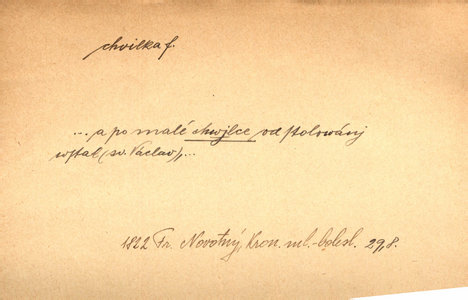 chvilka f.
... a po malé chwjlce od stolowánj
wstal (sv. Václav), ...
1822 Fr. Novotný, Kron. ml.-bolesl. 29,8.